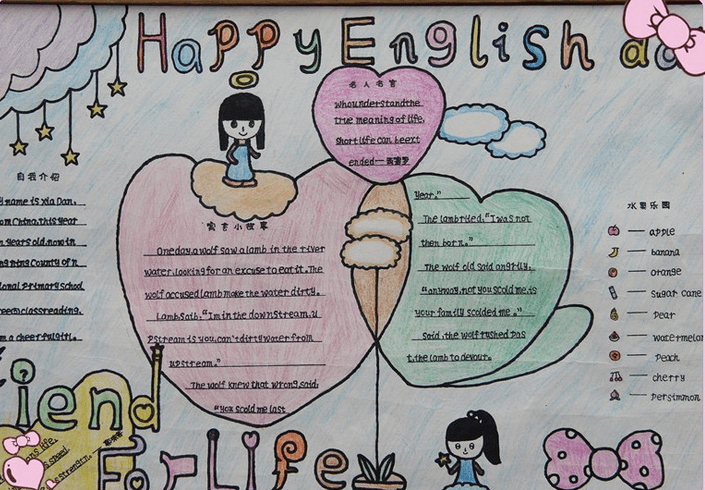 Happy English
名人名言
whounderstandthe
true meaning of life,
short life can beext
ended—西塞罗
自我介绍
y name is Xia Dan.
om China.this year
n years old.now in
County of n
ional primary school
class reading.
m a cheerful girl.
寓言小故事
One day,a wolf saw a lamb in the river
water,looking for an excuse to eat it.The
wolf accused lamb make the water dirty.
Lamb saib:"Im in the downstream,u
pstream is you,can't dirty water from
upstream."
The wolf knew that wrong,said:
"you scold me last
year."
The lamb ried:"I was not
then born."
The wolf old said angrily:
"anyway,not you scold me,is
your family scolded me."
Said,the wolf rushed pas
t,the lamb to devour.
水果乐园
— apple
— banana
— orange
— Sugar cane
— Pear
— watermelon
— Peach
— cherry
— Persimmon
iend
For Life
strength.